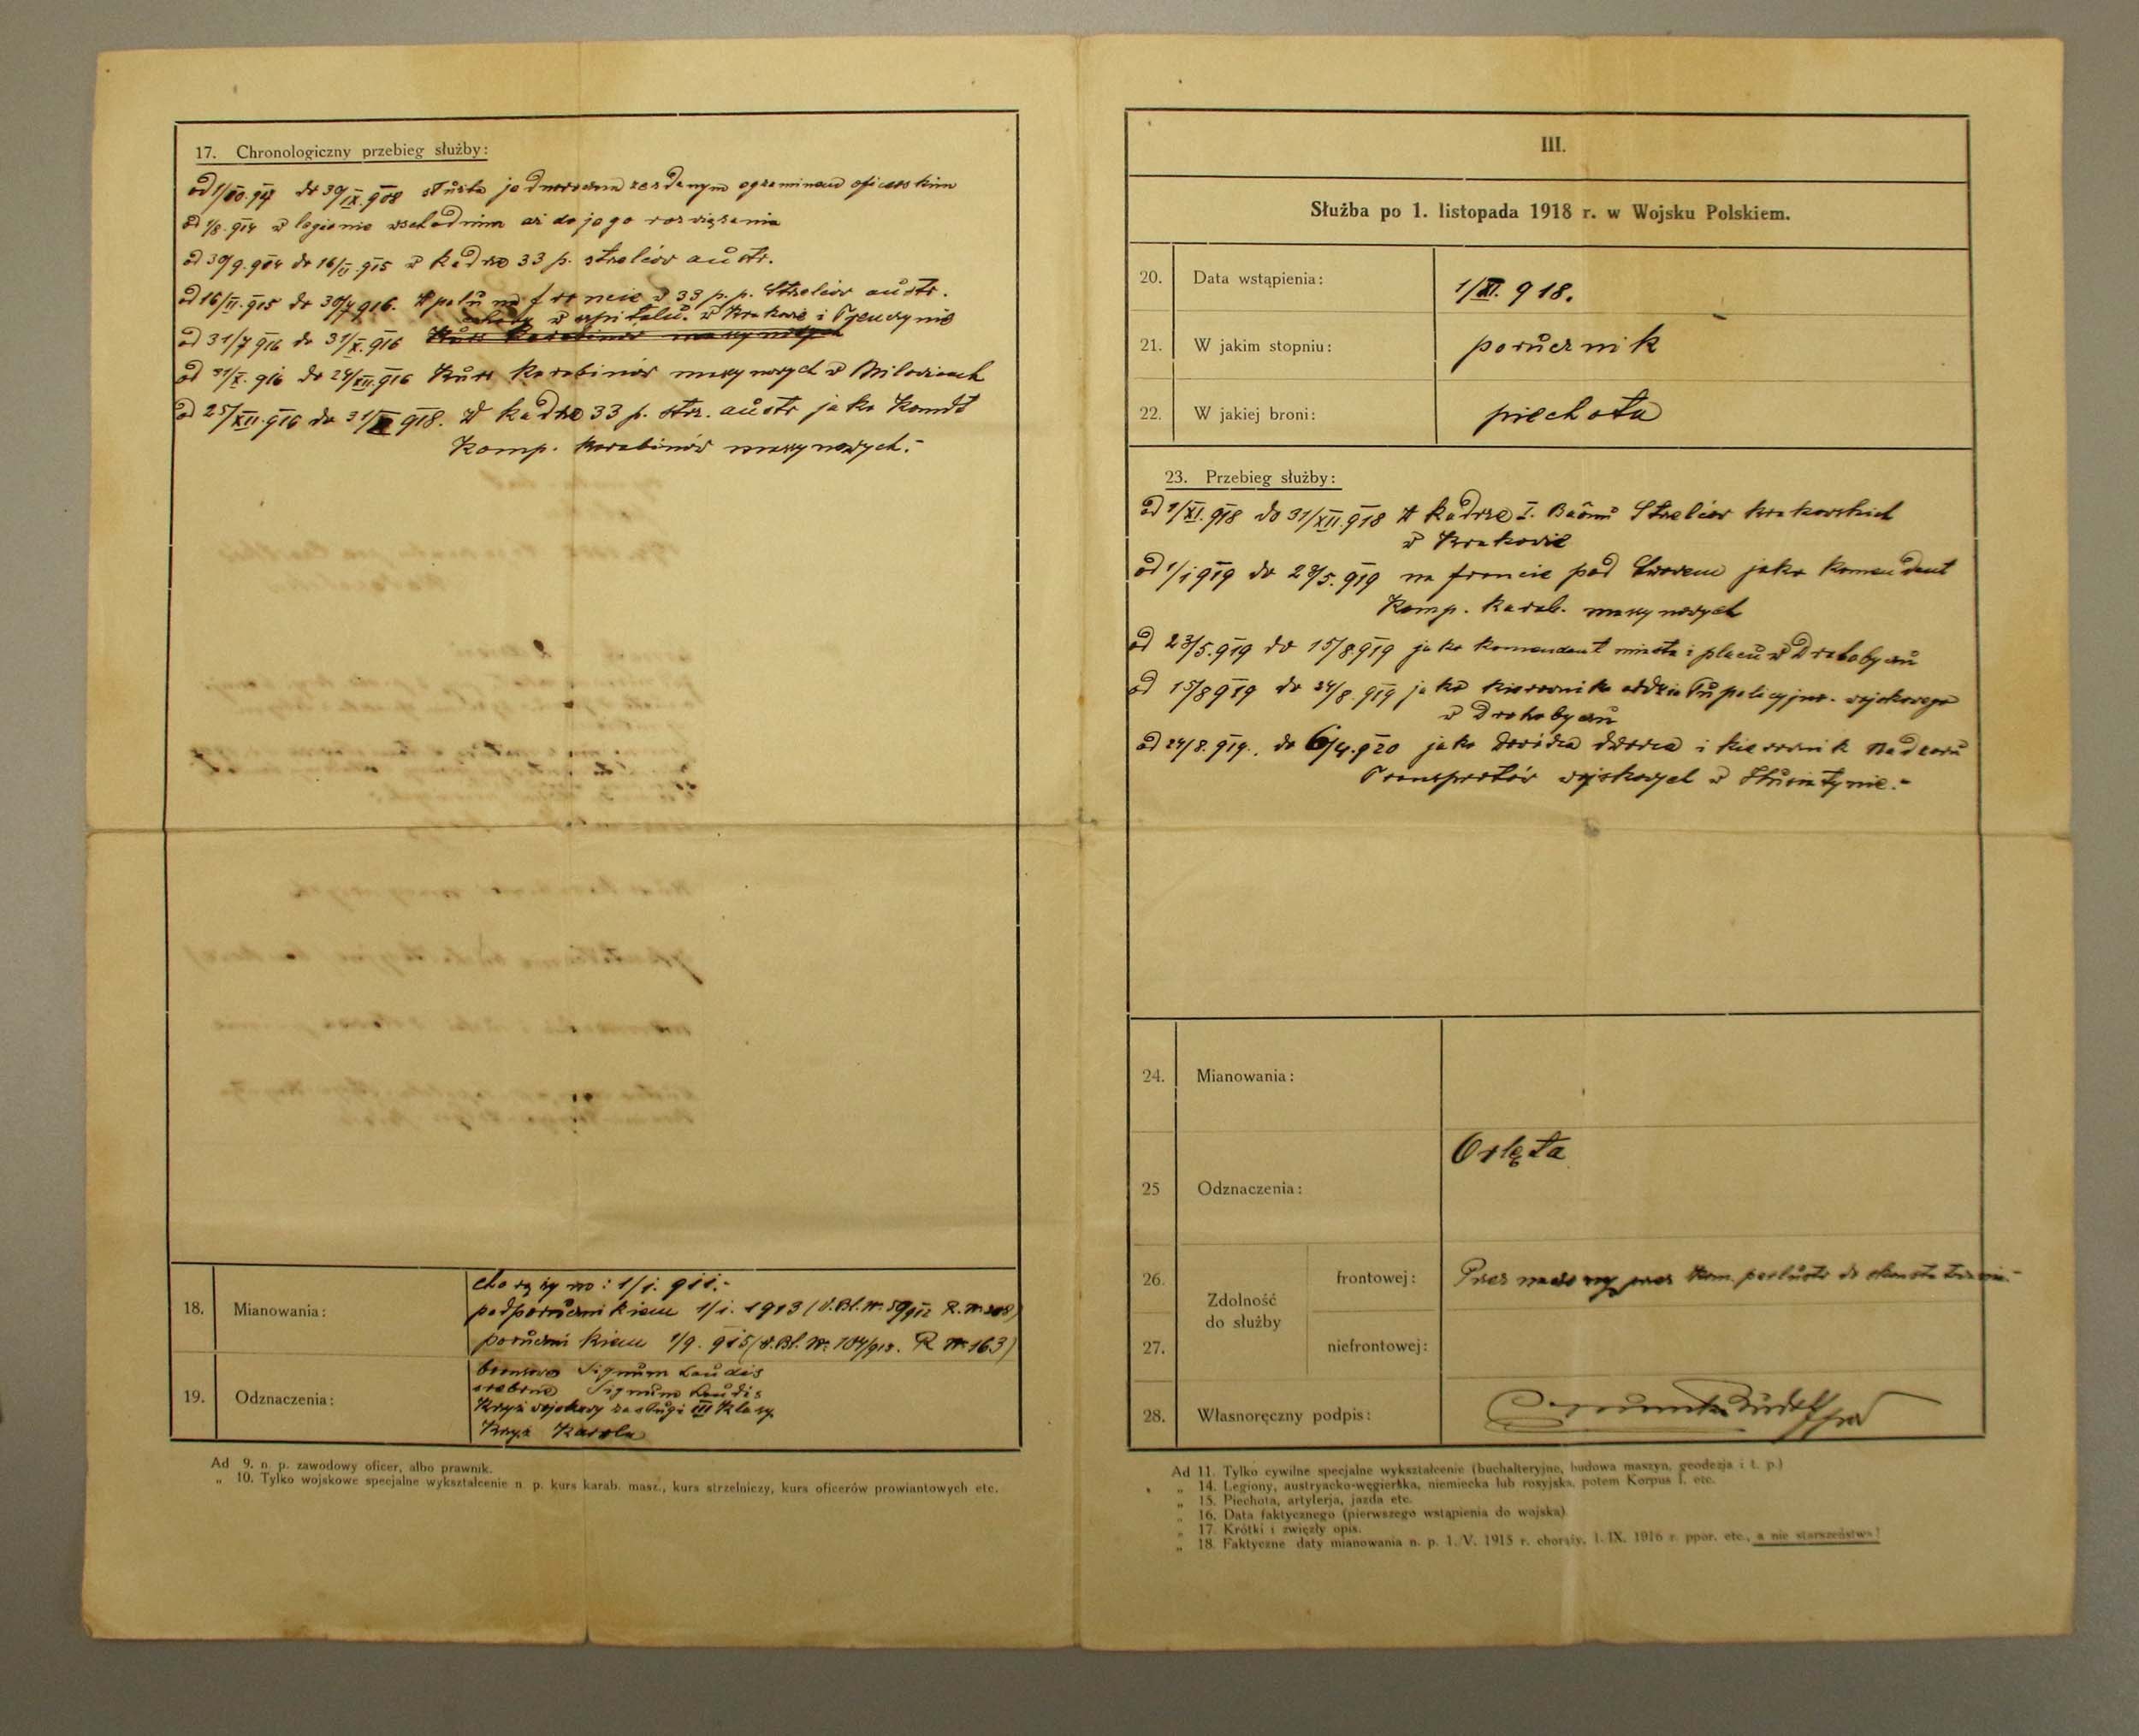 17. Chronologiczny przebieg służby:
od 1/10. 917 do 30/IX. 908 służba jednoroczna ze zdanym egzaminem oficerskim
od 1/8. 914 w legionie wschodnim aż do jego rozwiązania
od 30/9. 914 do 16/II. 915 w kadrze 33 p. strzelców austr.
od 16/II. 915 do 30/7 916. W polu na froncie w 33 p. p. Strzelców austr.
w szpitalu. w Krakowie i
od 31/7 916 do 31/X. 916 Kurs karabinów maszynowych
od 31/X. 916 do 24/XII. 916 Kurs karabinów maszynowych w
od 25/XII. 916 do 31/X 918. W kadrze 33 p. strz. austr jako Komdt
Komp. karabinów maszynowych.-
18. Mianowania:
chorążym: 1/1. 911.-
podporucznikiem 1/1. 1913 (V. Bl. Nr. 59/912 R. Nr 308)
porucznikiem 1/9. 915 (V. Bl. Nr. 104/918. R Nr 163)
19. Odznaczenia:
bronzowe Signum Laudis
srebrne Signum Laudis
Krzyż wojskowy zasługi III Klasy
Krzyż Karola
Ad 9. n. p. zawodowy oficer, albo prawnik.
„ 10. Tylko wojskowe specjalne wykształcenie n p. kurs karab. masz., kurs strzelniczy, kurs oficerów prowiantowych etc.
III.
Służba po 1. listopada 1918 r. w Wojsku Polskiem.
20. Data wstąpienia: 1/XI. 918.
21. W jakim stopniu: porucznik
22. W jakiej broni: piechota
23. Przebieg służby:
od 1/XI. 918 do 31/XII. 918 W kadrze I. Baonu Strzelców krakowskich
w Krakowie
od 1/1 919 do 23/5. 919 na froncie pod Lwowem jako komendant
Komp. karab. maszynowych
od 23/5. 919 do 15/8 919 jako komendant miasta i placu w Drohobyczu
od 15/8 919 do 24/8. 919 jako kierownik oddziału policyjno. wojskowego
w Drohobyczu
od 24/8. 919. do 6/4. 920 jako dowódca dworca i kierownik Nadzoru
Transportów wojskowych w Husiatynie.-
24. Mianowania:
25 Odznaczenia: Orlęta
Zdolność do służby
26. frontowej: Przez
27. niefrontowej:
28. Własnoręczny podpis:
Ad 11. Tylko cywilne specjalne wykształcenie (buchalteryjne, budowa maszyn, geodezja i t. p.)
„ 14. Legiony, austryacko-węgierska, niemiecka lub rosyjska, potem Korpus I. etc.
„ 15. Piechota, artylerja, jazda etc.
„ 16. Data faktycznego (pierwszego wstąpienia do wojska)
„ 17. Krótki i zwięzły opis.
„ 18. Faktyczne daty mianowania n. p. 1. V. 1915 r. chorąży, 1. IX. 1916 r. ppor. etc., a nie starszeństwa!